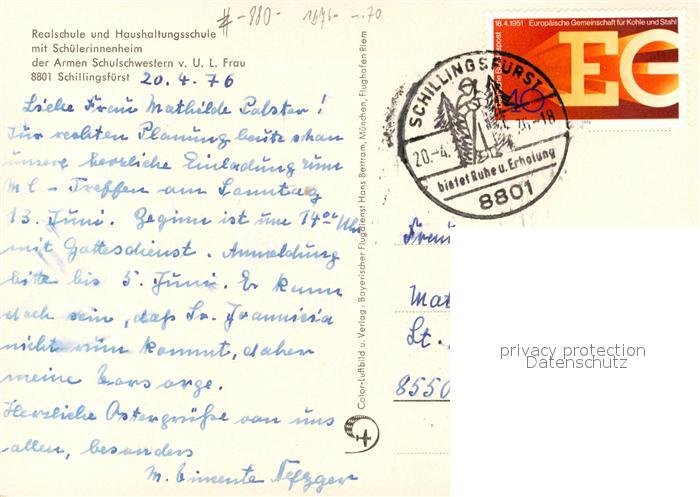 #-880- 1696- -.70
Realschule und Haushaltungsschule
mit Schülerinnenheim
der Armen Schulschwestern v. U. L. Frau
8801 Schillingsfürst 20.4.76
Liebe Frau Mathilde Palster!
Zur rechten Planung heute schon
unsere herzliche Einladung zum
MC-Treffen am Sonntag
13. Juni. Beginn ist um 14⁰⁰ Uhr
mit Gottesdienst. Anmeldung
bitte bis 5. Juni. Es kann
doch sein, daß Sr. Joannicia
nicht rum kommt, daher
meine Vorsorge.
Herzliche Ostergrüße von uns
allen, besonders
M.
Color-Luftbild u. Verlag: Bayerischer Flugdienst Hans Bertram, München, Flughafen Riem
18.4.1951 Europäische Gemeinschaft für Kohle und Stahl
EG
40
SCHILLINGSFÜRST
20.-4. 76.-18
bietet Ruhe u. Erholung
8801
Frau
Mat
Lt.
8550
privacy protection
Datenschutz